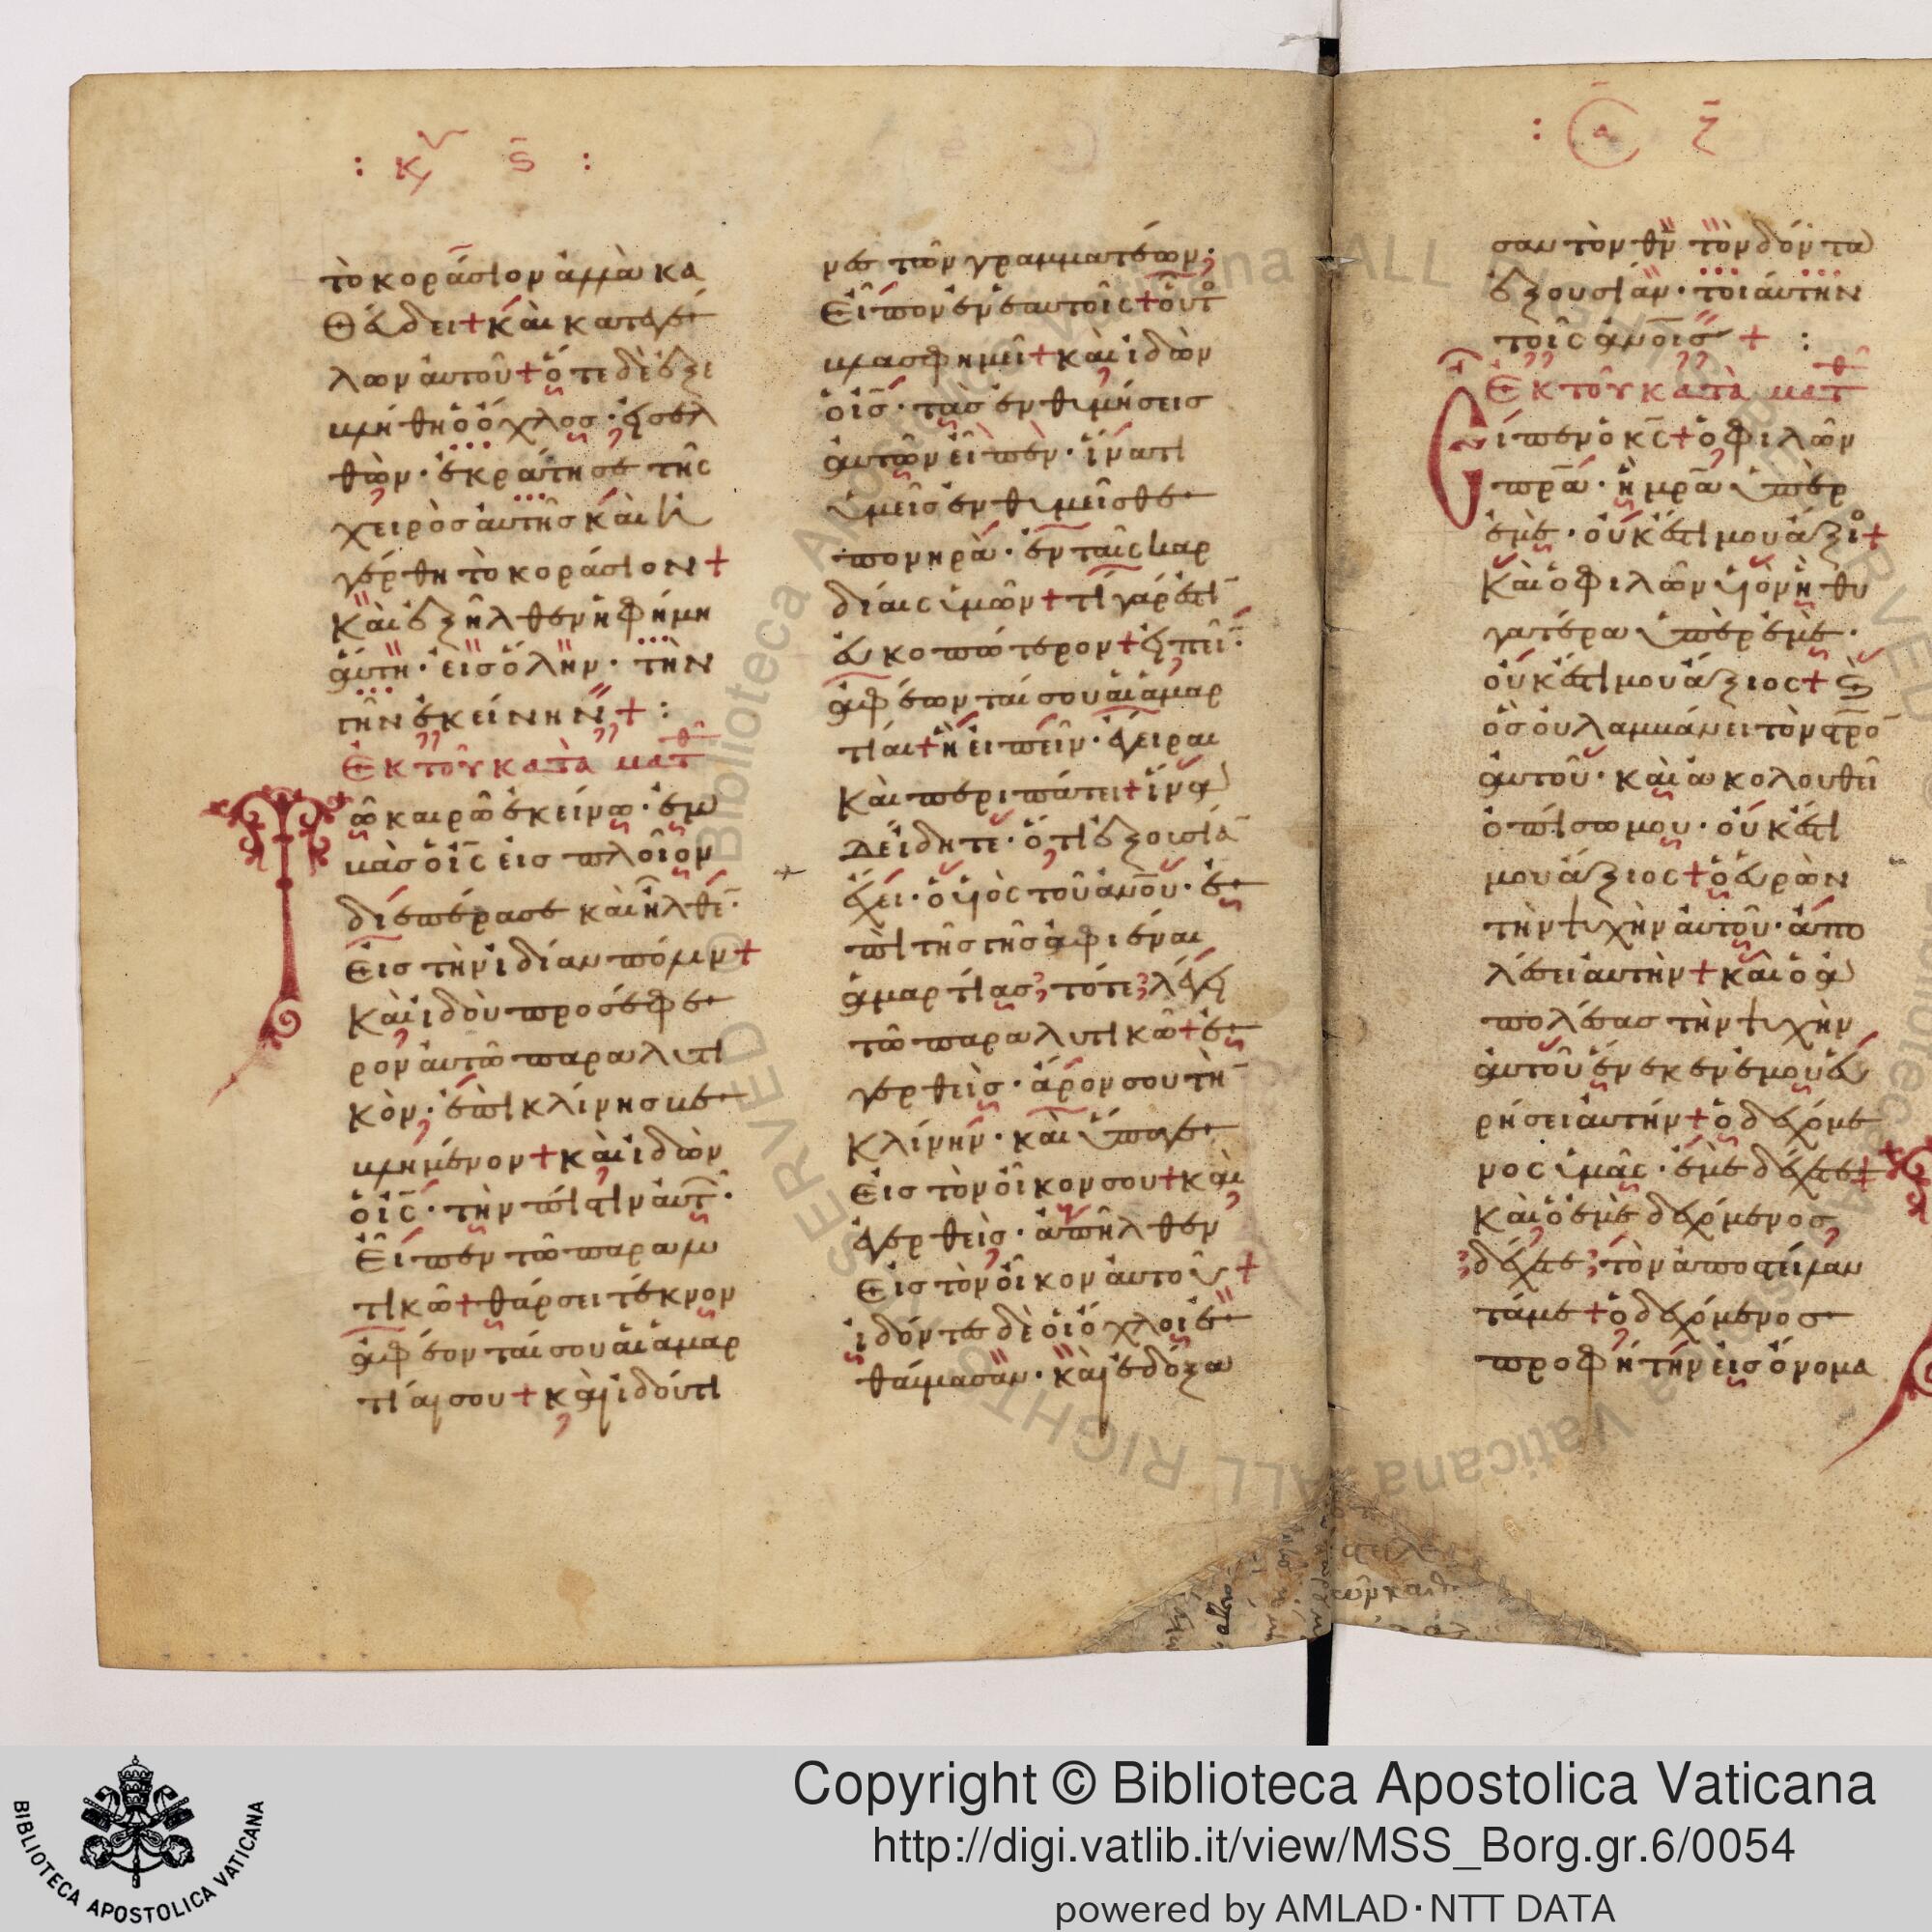 : κυ ϛ :
τὸ κοράσιον ἀλλὰ κα
θεύδει + καὶ κατεγέ
λων αὐτοῦ + ὅτε δὲ ἐξε
βλήθη ὁ ὄχλος · εἰσελ
θὼν · ἐκράτησε τῆς
χειρὸς αὐτῆς καὶ ἠ
γέρθη τὸ κοράσιον +
Καὶ ἐξῆλθεν ἡ φήμη
αὕτη · εἰς ὅλην · τὴν
γῆν ἐκείνην + :
Ἐκ τοῦ κατὰ ματθ
Τῶ καιρῶ ἐκείνω · ἐμ
βὰς ὁ ις εἰς πλοῖον
διεπέρασε καὶ ἦλθε ·
Εἰς τὴν ἰδίαν πόλιν +
Καὶ ἰδοὺ προσέφε
ρον αὐτῶ παραλυτι
κὸν · ἐπὶ κλίνης βε
βλημένον + καὶ ἰδὼν
ὁ ις · τὴν πίστιν αὐτ ·
Εἶπεν τῶ παραλυ
τικῶ + θάρσει τέκνον
ἀφέονταί σου αἱ ἁμαρ
τίαι σου + καὶ ἰδού τι
νες τῶν γραμματέων ·
Εἶπον ἐν ἑαυτοῖς + οὗτο
βλασφημεῖ + καὶ ἰδὼν
ὁ ις · τὰς ἐνθυμήσεις
αὐτῶν εἶπεν · ἵνατι
ὑμεῖς ἐνθυμεῖσθε
πονηρὰ · ἐν ταῖς καρ
δίαις ὑμῶν + τί γάρ ἐστι
εὐκοπώτερον + εἰπεῖ ·
ἀφέωνταί σου αἱ ἁμαρ
τίαι + ἢ εἰπεῖν · ἔγειραι
Καὶ περιπάτει + ἵνα
δὲ ἴδητε · ὅτι ἐξουσία
ἔχει · ὁ υἱὸς τοῦ ανου · ἐ
πὶ τῆς γῆς ἀφιέναι
ἁμαρτίας · τότε λέγει
τῶ παραλυτικῶ + ἐ
γερθεὶς · ἆρον σου τὴ
Κλίνην · καὶ ὕπαγε
Εἰς τὸν οἶκον σου + καὶ
ἐγερθεὶς · ἀπῆλθεν
Εἰς τὸν οἶκον αὐτοῦ +
ἰδόντες δὲ οἱ ὄχλοι ἐ
θαύμασαν · καὶ ἐδόξα
: α ζ
σαν τὸν θν τὸν δόντα
ἐξουσίαν · τοιαύτην
τοῖς ανοις + :
Ἐκ τοῦ κατὰ ματθ
Εἶπεν ὁ κς + ὁ φιλῶν
πρα · ἢ μρα ὑπὲρ
ἐμὲ · οὐκ ἔστι μου ἄξιο +
Καὶ ὁ φιλῶν υἱὸν ἢ θυ
γατέρα ὑπὲρ ἐμὲ ·
οὐκ ἔστι μου ἄξιος + καὶ
ὃς οὐ λαμβάνει τὸν στρο
αὐτοῦ · καὶ ἀκολουθεῖ
ὀπίσω μου · οὐκ ἔστι
μου ἄξιος + ὁ εὑρὼν
τὴν ψυχὴν αὐτοῦ · ἀπο
λέσει αὐτὴν + καὶ ὁ ἀ
πολέσας τὴν ψυχὴν
αὐτοῦ ἕνεκεν ἐμοῦ εὑ
ρήσει αὐτήν + ὁ δεχόμε
νος ὑμᾶς · ἐμὲ δέχεται +
Καὶ ὁ ἐμὲ δεχόμενος
δέχεται τὸν ἀποστείλαν
τά με + ὁ δεχόμενος
προφήτην εἰς ὄνομα
Copyright © Biblioteca Apostolica Vaticana
http://digi.vatlib.it/view/MSS_Borg.gr.6/0054
powered by AMLAD·NTT DATA
BIBLIOTECA APOSTOLICA VATICANA